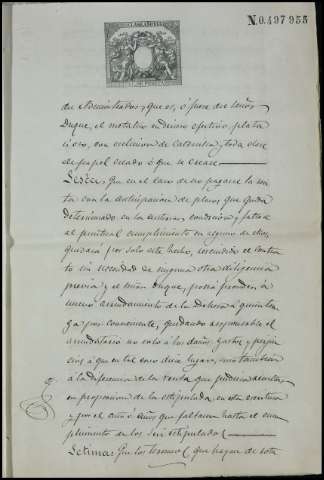 N.0.497.955
su Administrador, que es, ó fuere de dicho Señor
Duque, el metálico en dinero efectivo plata
ú oro, con exclusion de Calderilla y toda clase
de papel creado ó que se creare
Sesta: Que en el caso de no pagarse la ren
ta con la anticipacion de plazos que queda
determinado en la anterior condicion, y faltase
al puntual cumplimiento en alguno de ellos,
quedará por solo este hecho, rescindido el contra
to sin necesidad de ninguna otra diligencia
previa y el Señor Duque, podrá proceder á
nuevo arrendamiento de la Dehesa á quien ten
ga por conveniente, quedando responsable el
arrendatario no solo á los daños, gastos y perjui
cios á que en tal caso diere lugar, sino tambien
á la diferencia de la renta que pudiera resultar
en proporcion de la estipulada en esta escritura
y por el año ó años que faltasen hasta el cum
plimiento de los seis estipulados
Setima: Que los tesoros que hayan de